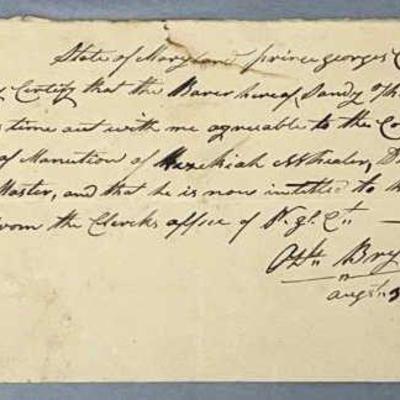 State of Maryland prince georges C
Certify that the Barer hereof, Sandy
time out with me agreeable to the Co
of Manution of Hezekiah Wheeler, D
Master, and that he is now intitled to h
from the Clerks office of P. Gs. Cty
Bry
augt